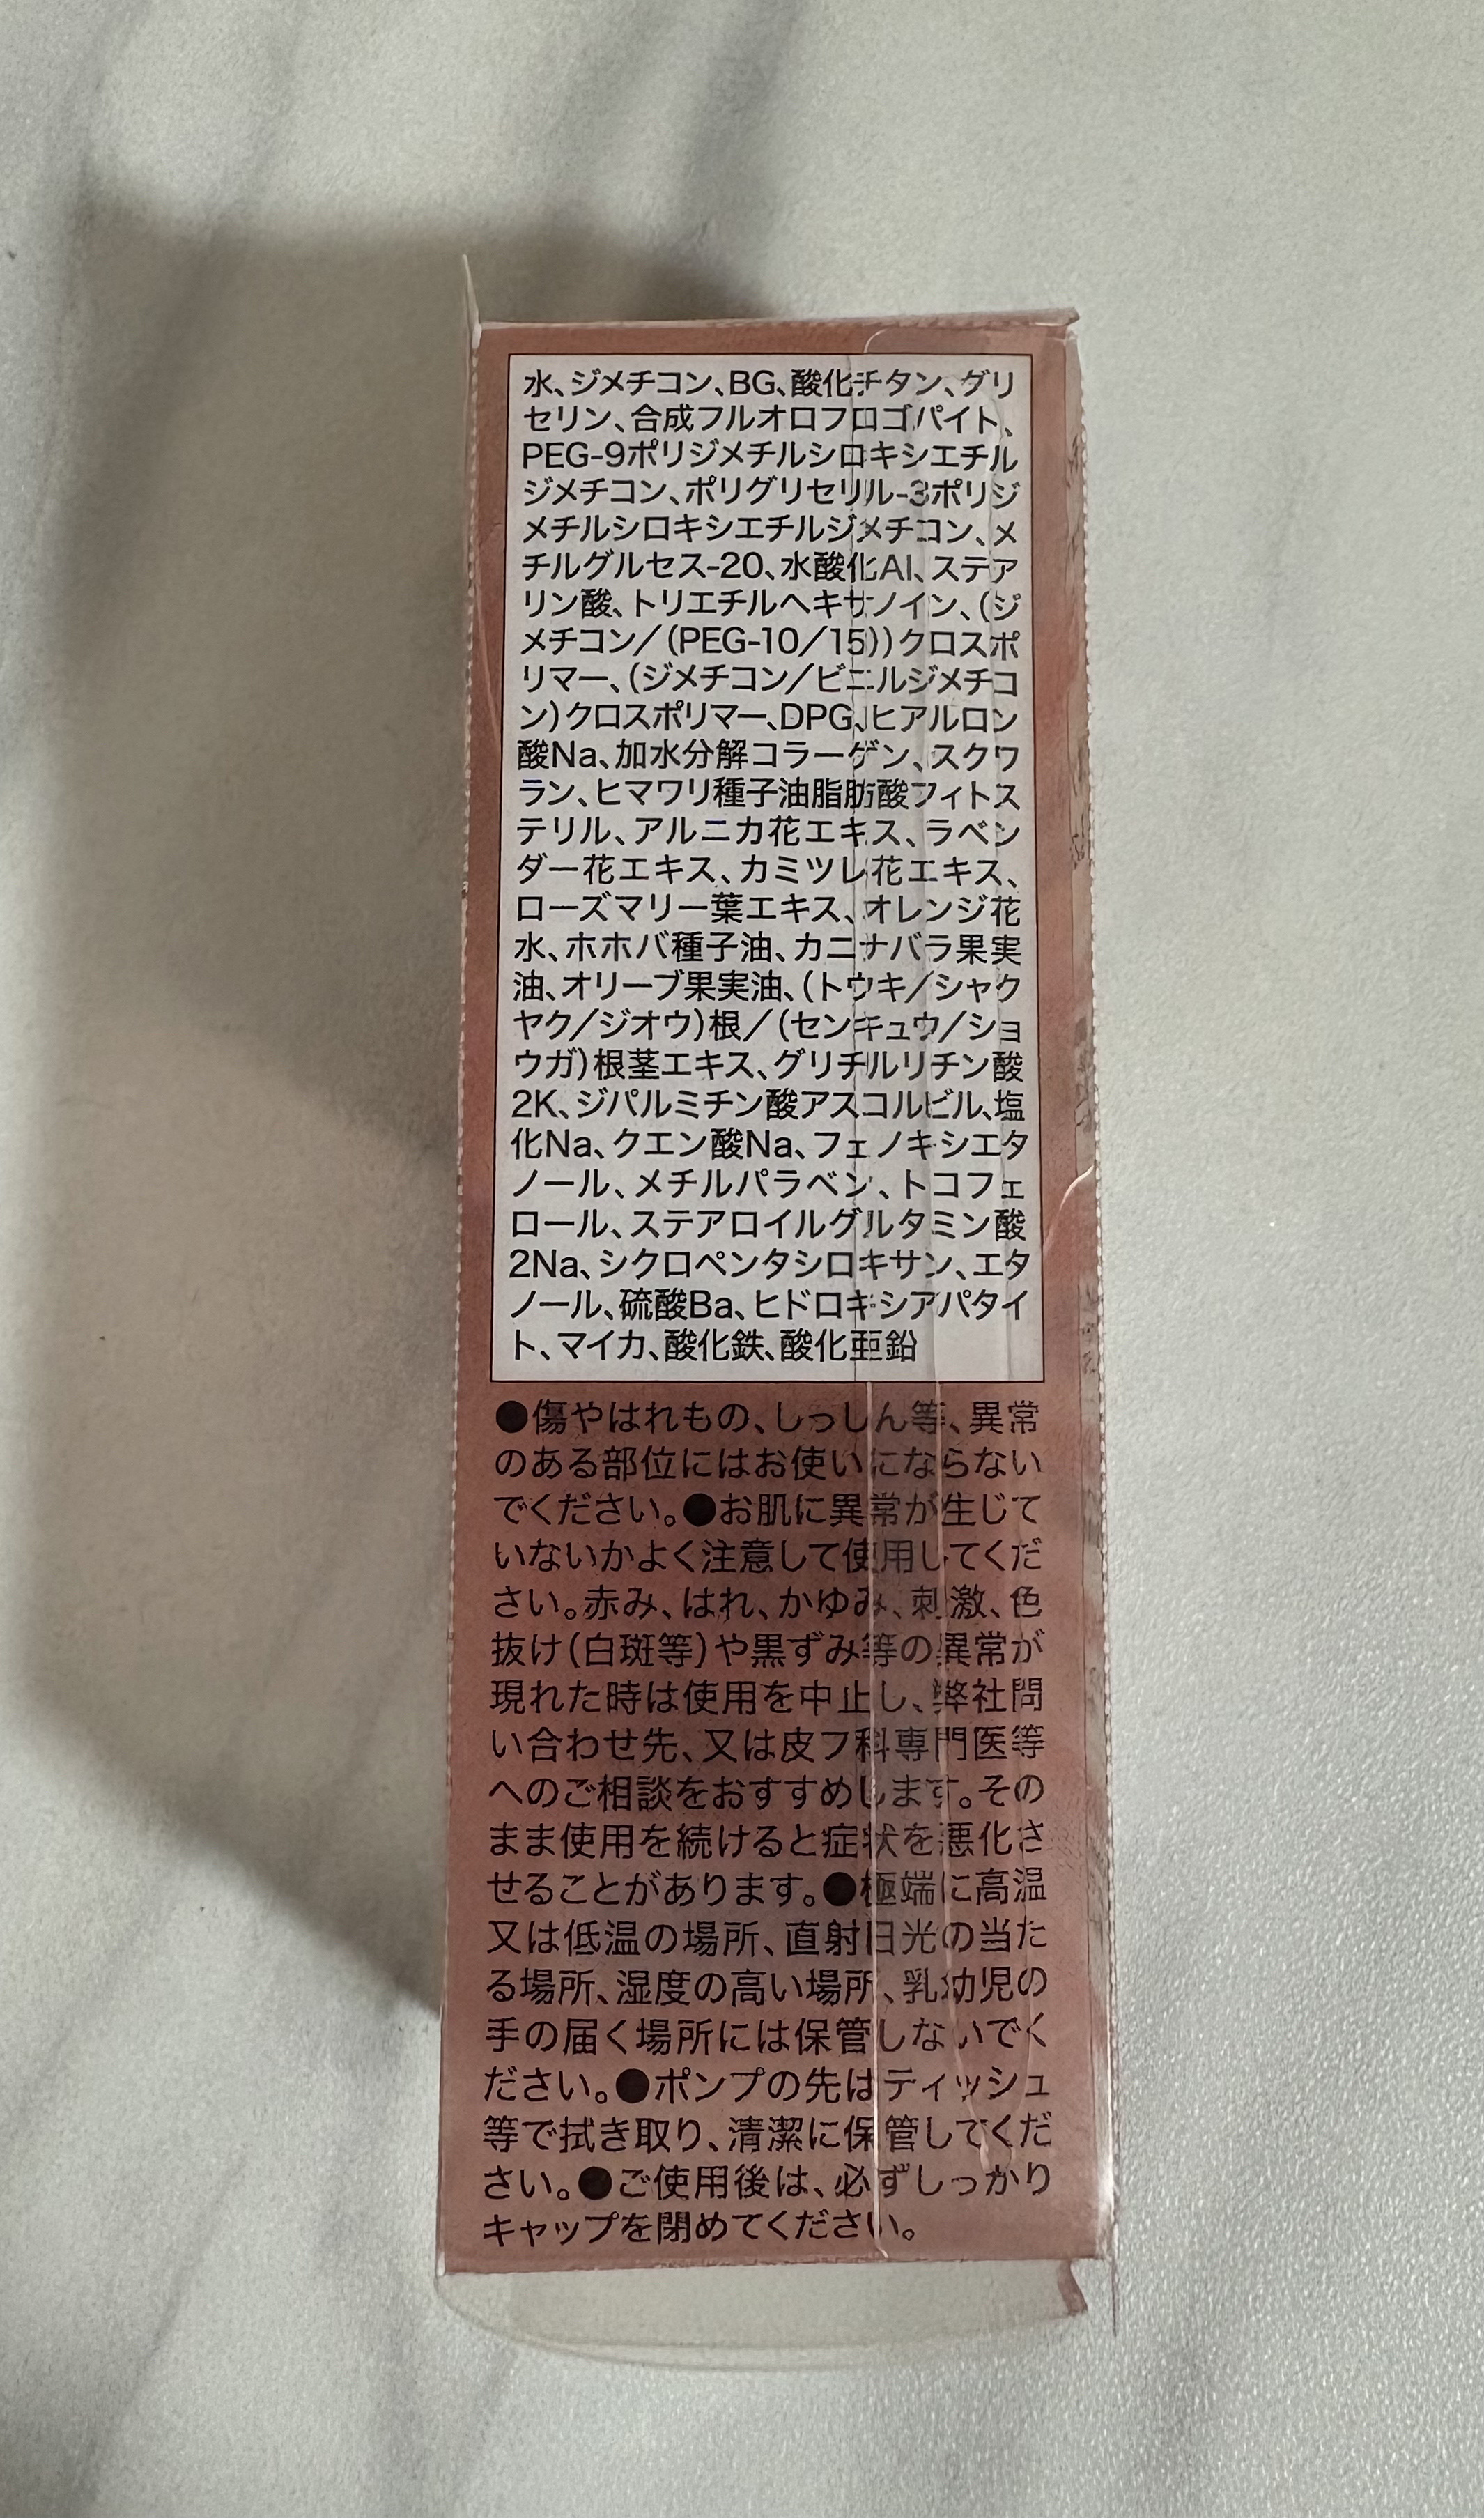 水、ジメチコン、BG、酸化チタン、グリ
セリン、合成フルオロフロゴパイト、
PEG-9ポリジメチルシロキシエチル
ジメチコン、ポリグリセリル-3ポリジ
メチルシロキシエチルジメチコン、メ
チルグルセス-20、水酸化Al、ステア
リン酸、トリエチルヘキサノイン、(ジ
メチコン/(PEG-10/15))クロスポ
リマー、(ジメチコン/ビニルジメチコ
ン)クロスポリマー、DPG、ヒアルロン
酸Na、加水分解コラーゲン、スクワ
ラン、ヒマワリ種子油脂肪酸フィトス
テリル、アルニカ花エキス、ラベン
ダー花エキス、カミツレ花エキス、
ローズマリー葉エキス、オレンジ花
水、ホホバ種子油、カニナバラ果実
油、オリーブ果実油、(トウキ/シャク
ヤク/ジオウ)根/(センキュウ/ショ
ウガ)根茎エキス、グリチルリチン酸
2K、ジパルミチン酸アスコルビル、塩
化Na、クエン酸Na、フェノキシエタ
ノール、メチルパラベン、トコフェ
ロール、ステアロイルグルタミン酸
2Na、シクロペンタシロキサン、エタ
ノール、硫酸Ba、ヒドロキシアパタイ
ト、マイカ、酸化鉄、酸化亜鉛
●傷やはれもの、しっしん等、異常
のある部位にはお使いにならない
でください。●お肌に異常が生じて
いないかよく注意して使用してくだ
さい。赤み、はれ、かゆみ、刺激、色
抜け(白斑等)や黒ずみ等の異常が
現れた時は使用を中止し、弊社問
い合わせ先、又は皮フ科専門医等
へのご相談をおすすめします。その
まま使用を続けると症状を悪化さ
せることがあります。●極端に高温
又は低温の場所、直射日光の当た
る場所、湿度の高い場所、乳幼児の
手の届く場所には保管しないでく
ださい。●ポンプの先はティッシュ
等で拭き取り、清潔に保管してくだ
さい。●ご使用後は、必ずしっかり
キャップを閉めてください。